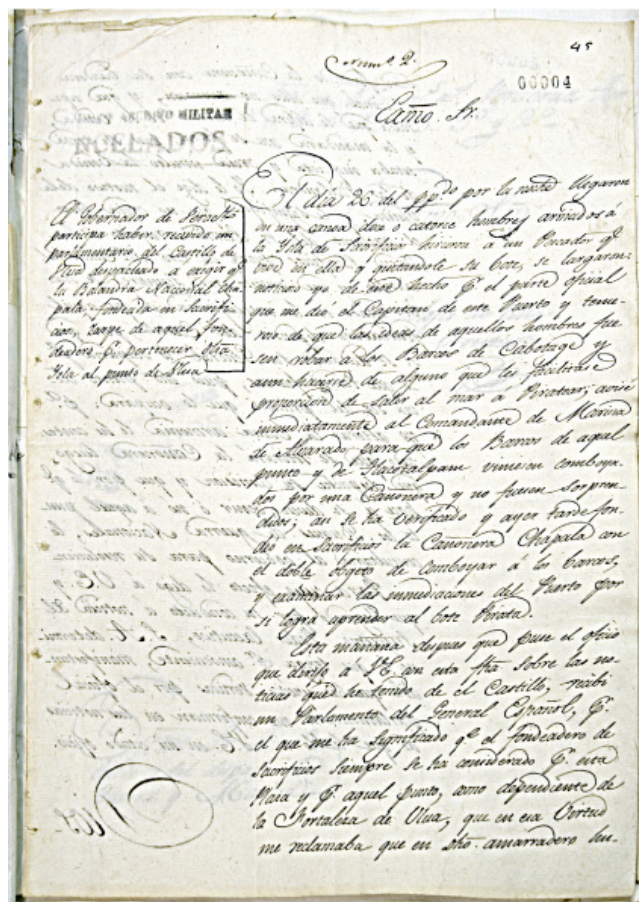 Num.º 2.
45
00004
Exmo. Sr.
ARCHIVO MILITAR
CANCELADOS
El Gobernador de Veracruz
participa haber recibido un
parlamentario del Castillo de
Ulua despachado a exigir qᵉ
la Balandra Nacional Cha-
pala, fondeada en Sacrifi-
cios, largue de aquel fon-
deadero pʳ pertenecer dha
Ysla al punto de Ulua
El dia 26 del ppdo por la noche llegaron
en una canoa doce o catorce hombres armados á
la Ysla de Sacrificios hicieron a un Pescador qᵉ
vive en ella y quitandole su bote, se largaron:
noticioso yo de este hecho pʳ el parte oficial
que me dio el Capitan de este Puerto y teme-
roso de que las ideas de aquellos hombres fue-
sen robar a los Barcos de Cabotage y
aun hacerse de alguno que les facilitase
proporcion de salir al mar a Piratear; avisé
inmediatamente al Comandante de Marina
de Alvarado para que los Barcos de aquel
punto y de Tlacotalpam viniesen comboya-
dos por una Cañonera y no fuesen sorpren-
didos; asi se ha verificado y ayer tarde fon-
deó en Sacrificios la Cañonera Chapala con
el doble objeto de comboyar á los barcos,
y examinar las inmediaciones del Puerto por
si logra aprender al bote Pirata.
Esta mañana despues que puse el oficio
que dirijo a V.E. con esta fha sobre las no-
ticias que he tenido de el Castillo, recibi
un Parlamento del General Español, pʳ
el que me ha significado qᵉ el fondeadero de
Sacrificios siempre se ha considerado pʳ esta
Plaza y pʳ aquel punto, como dependiente de
la Fortaleza de Ulua, que en esa Virtud
me reclamaba que en dho. amarradero hu-